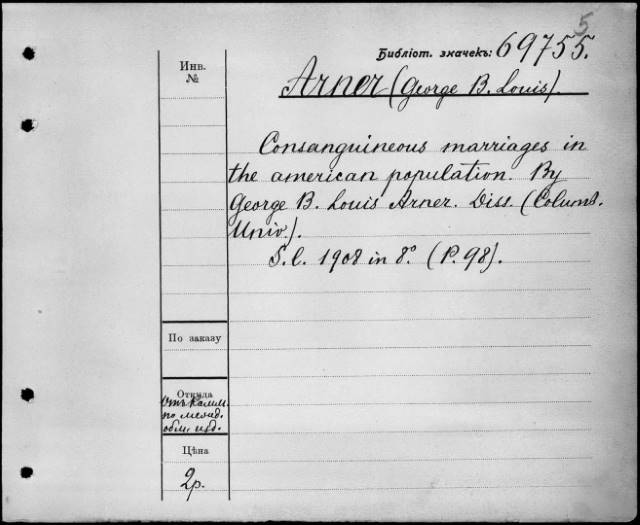 5
Библіот. значекъ: 69755.
Инв.
№
Arner (George B. Louis).
Consanguineous marriages in
the american population. By
George B. Louis Arner. Diss. (Columb.
Univ.).
S. l. 1908 in 8° (P. 98).
По заказу
Откуда
по
обм. изд.
Цѣна
2р.